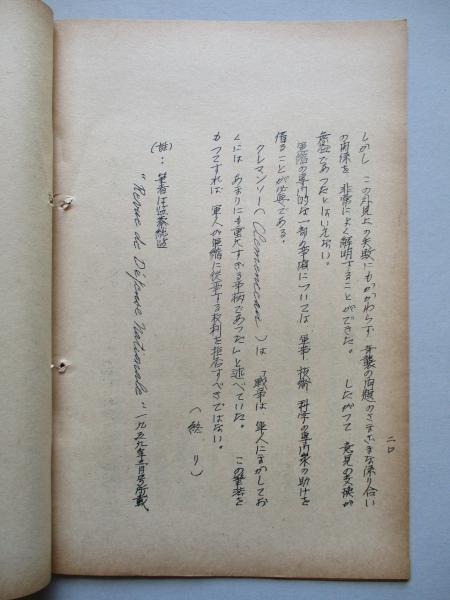 二〇
しかし この外見上の失敗にもかかわらず 奇襲の問題のさまざまな係り合い
の関係を 非常によく解明することができた。 したがって 意見の交換が
無益であったとはいえない。
軍縮の専門的な一部の事項については 軍事 技術 科学の専門家の助けを
借りることが必要である。
クレマンソー(Clemenceau)は 「戦争は 軍人にまかしてお
くには あまりにも重大すぎる事柄であった」と述べていた。 この筆法を
もってすれば 軍人が軍縮に従事する権利を拒否すべきではない。
(終 り)
: 筆者は
"Revue de Défense Nationale" 一九五九年 月号所載